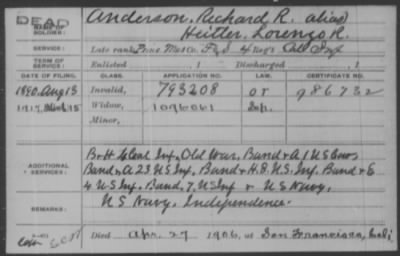 DEAD
NAME OF SOLDIER:
Anderson, Richard R. alias
Heitler, Lorenzo R.
SERVICE:
Late rank, Prine Musc. F&S 4 Reg't Cal Inf
TERM OF SERVICE:
Enlisted , 1 Discharged , 1
DATE OF FILING. CLASS. APPLICATION NO. LAW. CERTIFICATE NO.
1890 Aug 13 Invalid, 793208 or 986732
1917, 15 Widow, 1096061
Minor,
ADDITIONAL SERVICES:
Inf, Old War, Band & A 1 US
Band & A 23 US Inf, Band & H. 8 U.S. Inf. Band & E
4 U.S Inf, Band, 7, US Inf & U.S Navy,
REMARKS:
U S Navy, Independence.
Died Apr. 27, 1906, at San Francisco, Cal;